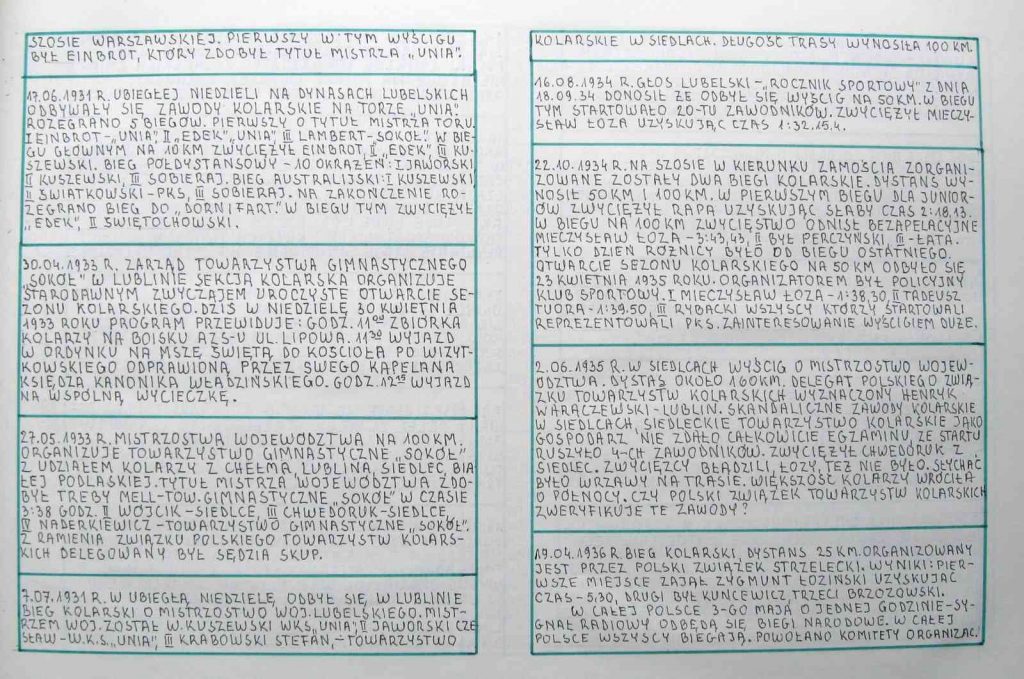 SZOSIE WARSZAWSKIEJ. PIERWSZY W TYM WYŚCIGU
BYŁ EINBROT, KTÓRY ZDOBYŁ TYTUŁ MISTRZA „UNIA".
17.06.1931 R. UBIEGŁEJ NIEDZIELI NA DYNASACH LUBELSKICH
ODBYWAŁY SIĘ ZAWODY KOLARSKIE NA TORZE „UNIA".
ROZEGRANO 5 BIEGÓW. PIERWSZY O TYTUŁ MISTRZA TORU.
I EINBROT-„UNIA", II „EDEK", „UNIA", III LAMBERT-SOKÓŁ". W BIE-
GU GŁÓWNYM NA 10 KM ZWYCIĘŻYŁ EINBROT, II „EDEK", III KU-
SZEWSKI. BIEG PÓŁDYSTANSOWY-10 OKRĄŻEŃ: I JAWORSKI
II KUSZEWSKI, III SOBIERAJ. BIEG AUSTRALIJSKI: I KUSZEWSKI
II ŚWIATKOWSKI-PKS, III SOBIERAJ. NA ZAKOŃCZENIE RO-
ZEGRANO BIEG DO „DORNIFART." W BIEGU TYM ZWYCIĘŻYŁ
„EDEK", II ŚWIĘTOCHOWSKI.
30.04.1933 R. ZARZĄD TOWARZYSTWA GIMNASTYCZNEGO
„SOKÓŁ" W LUBLINIE SEKCJA KOLARSKA ORGANIZUJE
STARODAWNYM ZWYCZAJEM UROCZYSTE OTWARCIE SE-
ZONU KOLARSKIEGO. DZIŚ W NIEDZIELĘ 30 KWIETNIA
1933 ROKU PROGRAM PRZEWIDUJE: GODZ. 11⁰⁰ ZBIÓRKA
KOLARZY NA BOISKU AZS-U UL. LIPOWA. 11³⁰ WYJAZD
W ORDYNKU NA MSZĘ ŚWIĘTĄ DO KOŚCIOŁA PO WIZYT-
KOWSKIEGO ODPRAWIONĄ PRZEZ SWEGO KAPELANA
KSIĘDZA KANONIKA WŁADZIŃSKIEGO. GODZ. 12¹⁵ WYJAZD
NA WSPÓLNĄ WYCIECZKĘ.
27.05.1933 R. MISTRZOSTWA WOJEWÓDZTWA NA 100 KM.
ORGANIZUJE TOWARZYSTWO GIMNASTYCZNE „SOKÓŁ"
Z UDZIAŁEM KOLARZY Z CHEŁMA, LUBLINA, SIEDLEC, BIA-
ŁEJ PODLASKIEJ. TYTUŁ MISTRZA WOJEWÓDZTWA ZDO-
BYŁ TREBY MELL-TOW. GIMNASTYCZNE „SOKÓŁ" W CZASIE
3:38 GODZ. II WÓJCIK-SIEDLCE, III CHWEDORUK-SIEDLCE,
IV NADERKIEWICZ-TOWARZYSTWO GIMNASTYCZNE „SOKÓŁ".
Z RAMIENIA ZWIĄZKU POLSKIEGO TOWARZYSTW KOLARS-
KICH DELEGOWANY BYŁ SĘDZIA SKUP.
7.07.1931 R. W UBIEGŁĄ NIEDZIELĘ ODBYŁ SIĘ W LUBLINIE
BIEG KOLARSKI O MISTRZOSTWO WOJ. LUBELSKIEGO. MIST-
RZEM WOJ. ZOSTAŁ W. KUSZEWSKI WKS „UNIA", II JAWORSKI CZE-
SŁAW-W.K.S. „UNIA", III KRABOWSKI STEFAN,-TOWARZYSTWO
KOLARSKIE W SIEDLACH. DŁUGOŚĆ TRASY WYNOSIŁA 100 KM.
16.08.1934 R. GŁOS LUBELSKI-„ROCZNIK SPORTOWY" Z DNIA
18.09.34 DONOSIŁ ŻE ODBYŁ SIĘ WYŚCIG NA 50 KM. W BIEGU
TYM STARTOWAŁO 20-TU ZAWODNIKÓW. ZWYCIĘŻYŁ MIECZY-
SŁAW ŁOZA UZYSKUJĄC CZAS 1:32.15.4.
22.10.1934 R. NA SZOSIE W KIERUNKU ZAMOŚCIA ZORGANI-
ZOWANE ZOSTAŁY DWA BIEGI KOLARSKIE. DYSTANS WY-
NOSIŁ 50 KM I 100 KM. W PIERWSZYM BIEGU DLA JUNIOR-
ÓW ZWYCIĘŻYŁ RAPA UZYSKUJĄC SŁABY CZAS 2:18,13.
W BIEGU NA 100 KM ZWYCIĘSTWO ODNIÓSŁ BEZAPELACYJNE
MIECZYSŁAW ŁOZA-3:43,43, II BYŁ PERCZYŃSKI, III-ŁATA.
TYLKO DZIEŃ RÓŻNICY BYŁO OD BIEGU OSTATNIEGO.
OTWARCIE SEZONU KOLARSKIEGO NA 50 KM ODBYŁO SIĘ
23 KWIETNIA 1935 ROKU. ORGANIZATOREM BYŁ POLICYJNY
KLUB SPORTOWY. I MIECZYSŁAW ŁOZA-1:38,30, II TADEUSZ
TUORA-1:39.50, III RYBACKI WSZYSCY KTÓRZY STARTOWALI
REPREZENTOWALI PKS. ZAINTERESOWANIE WYŚCIGIEM DUŻE.
2.06.1935 R. W SIEDLCACH WYŚCIG O MISTRZOSTWO WOJEW-
ÓDZTWA. DYSTAS OKOŁO 160 KM. DELEGAT POLSKIEGO ZWIĄ-
ZKU TOWARZYSTW KOLARSKICH WYZNACZONY HENRYK
WARACZEWSKI-LUBLIN. SKANDALICZNE ZAWODY KOLARSKIE
W SIEDLCACH, SIEDLECKIE TOWARZYSTWO KOLARSKIE JAKO
GOSPODARZ NIE ZDAŁO CAŁKOWICIE EGZAMINU, ZE STARTU
RUSZYŁO 4-CH ZAWODNIKÓW. ZWYCIĘŻYŁ CHWEDORUK Z
SIEDLEC. ZWYCIĘZCY BŁĄDZILI, ŁOZY, TEŻ NIE BYŁO. SŁYCHAĆ
BYŁO WRZAWY NA TRASIE. WIĘKSZOŚĆ KOLARZY WRÓCIŁA
O PÓŁNOCY. CZY POLSKI ZWIĄZEK TOWARZYSTW KOLARSKICH
ZWERYFIKUJE TE ZAWODY?
19.04.1936 R. BIEG KOLARSKI, DYSTANS 25 KM. ORGANIZOWANY
JEST PRZEZ POLSKI ZWIĄZEK STRZELECKI. WYNIKI: PIER-
WSZE MIEJSCE ZAJĄŁ ZYGMUNT ŁOZIŃSKI UZYSKUJĄC
CZAS-5,30, DRUGI BYŁ KUNCEWICZ, TRZECI BRZOZOWSKI.
W CAŁEJ POLSCE 3-GO MAJA O JEDNEJ GODZINIE-SY-
GNAŁ RADIOWY ODBĘDĄ SIĘ BIEGI NARODOWE. W CAŁEJ
POLSCE WSZYSCY BIEGAJĄ. POWOŁANO KOMITETY ORGANIZAC.